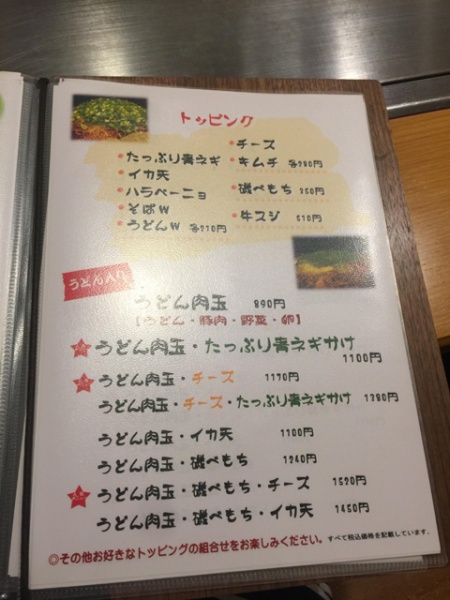 トッピング
・たっぷり青ネギ
・イカ天
・ハラペーニョ
・そばW
・うどんW 各210円
・チーズ
・キムチ 各280円
・磯べもち 350円
・牛スジ 510円
うどん入り
うどん肉玉 890円
【うどん・豚肉・野菜・卵】
うどん肉玉・たっぷり青ネギかけ
1100円
うどん肉玉・チーズ 1170円
うどん肉玉・チーズ・たっぷり青ネギかけ 1380円
うどん肉玉・イカ天 1100円
うどん肉玉・磯べもち 1240円
うどん肉玉・磯べもち・チーズ 1520円
うどん肉玉・磯べもち・イカ天 1450円
◎その他お好きなトッピングの組合せをお楽しみください。
すべて税込価格を記載しています。